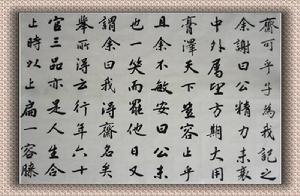 齋可乎子為我記之
余謝曰公精力未衰
中外屬望方期大用
膏澤天下豈容止乎
且余不敏安曰公未
也一笑而罷他日又
謂余曰我得齋名矣
舉所得去行年六十
官三品亦是人生合
止時以止扁一容膝